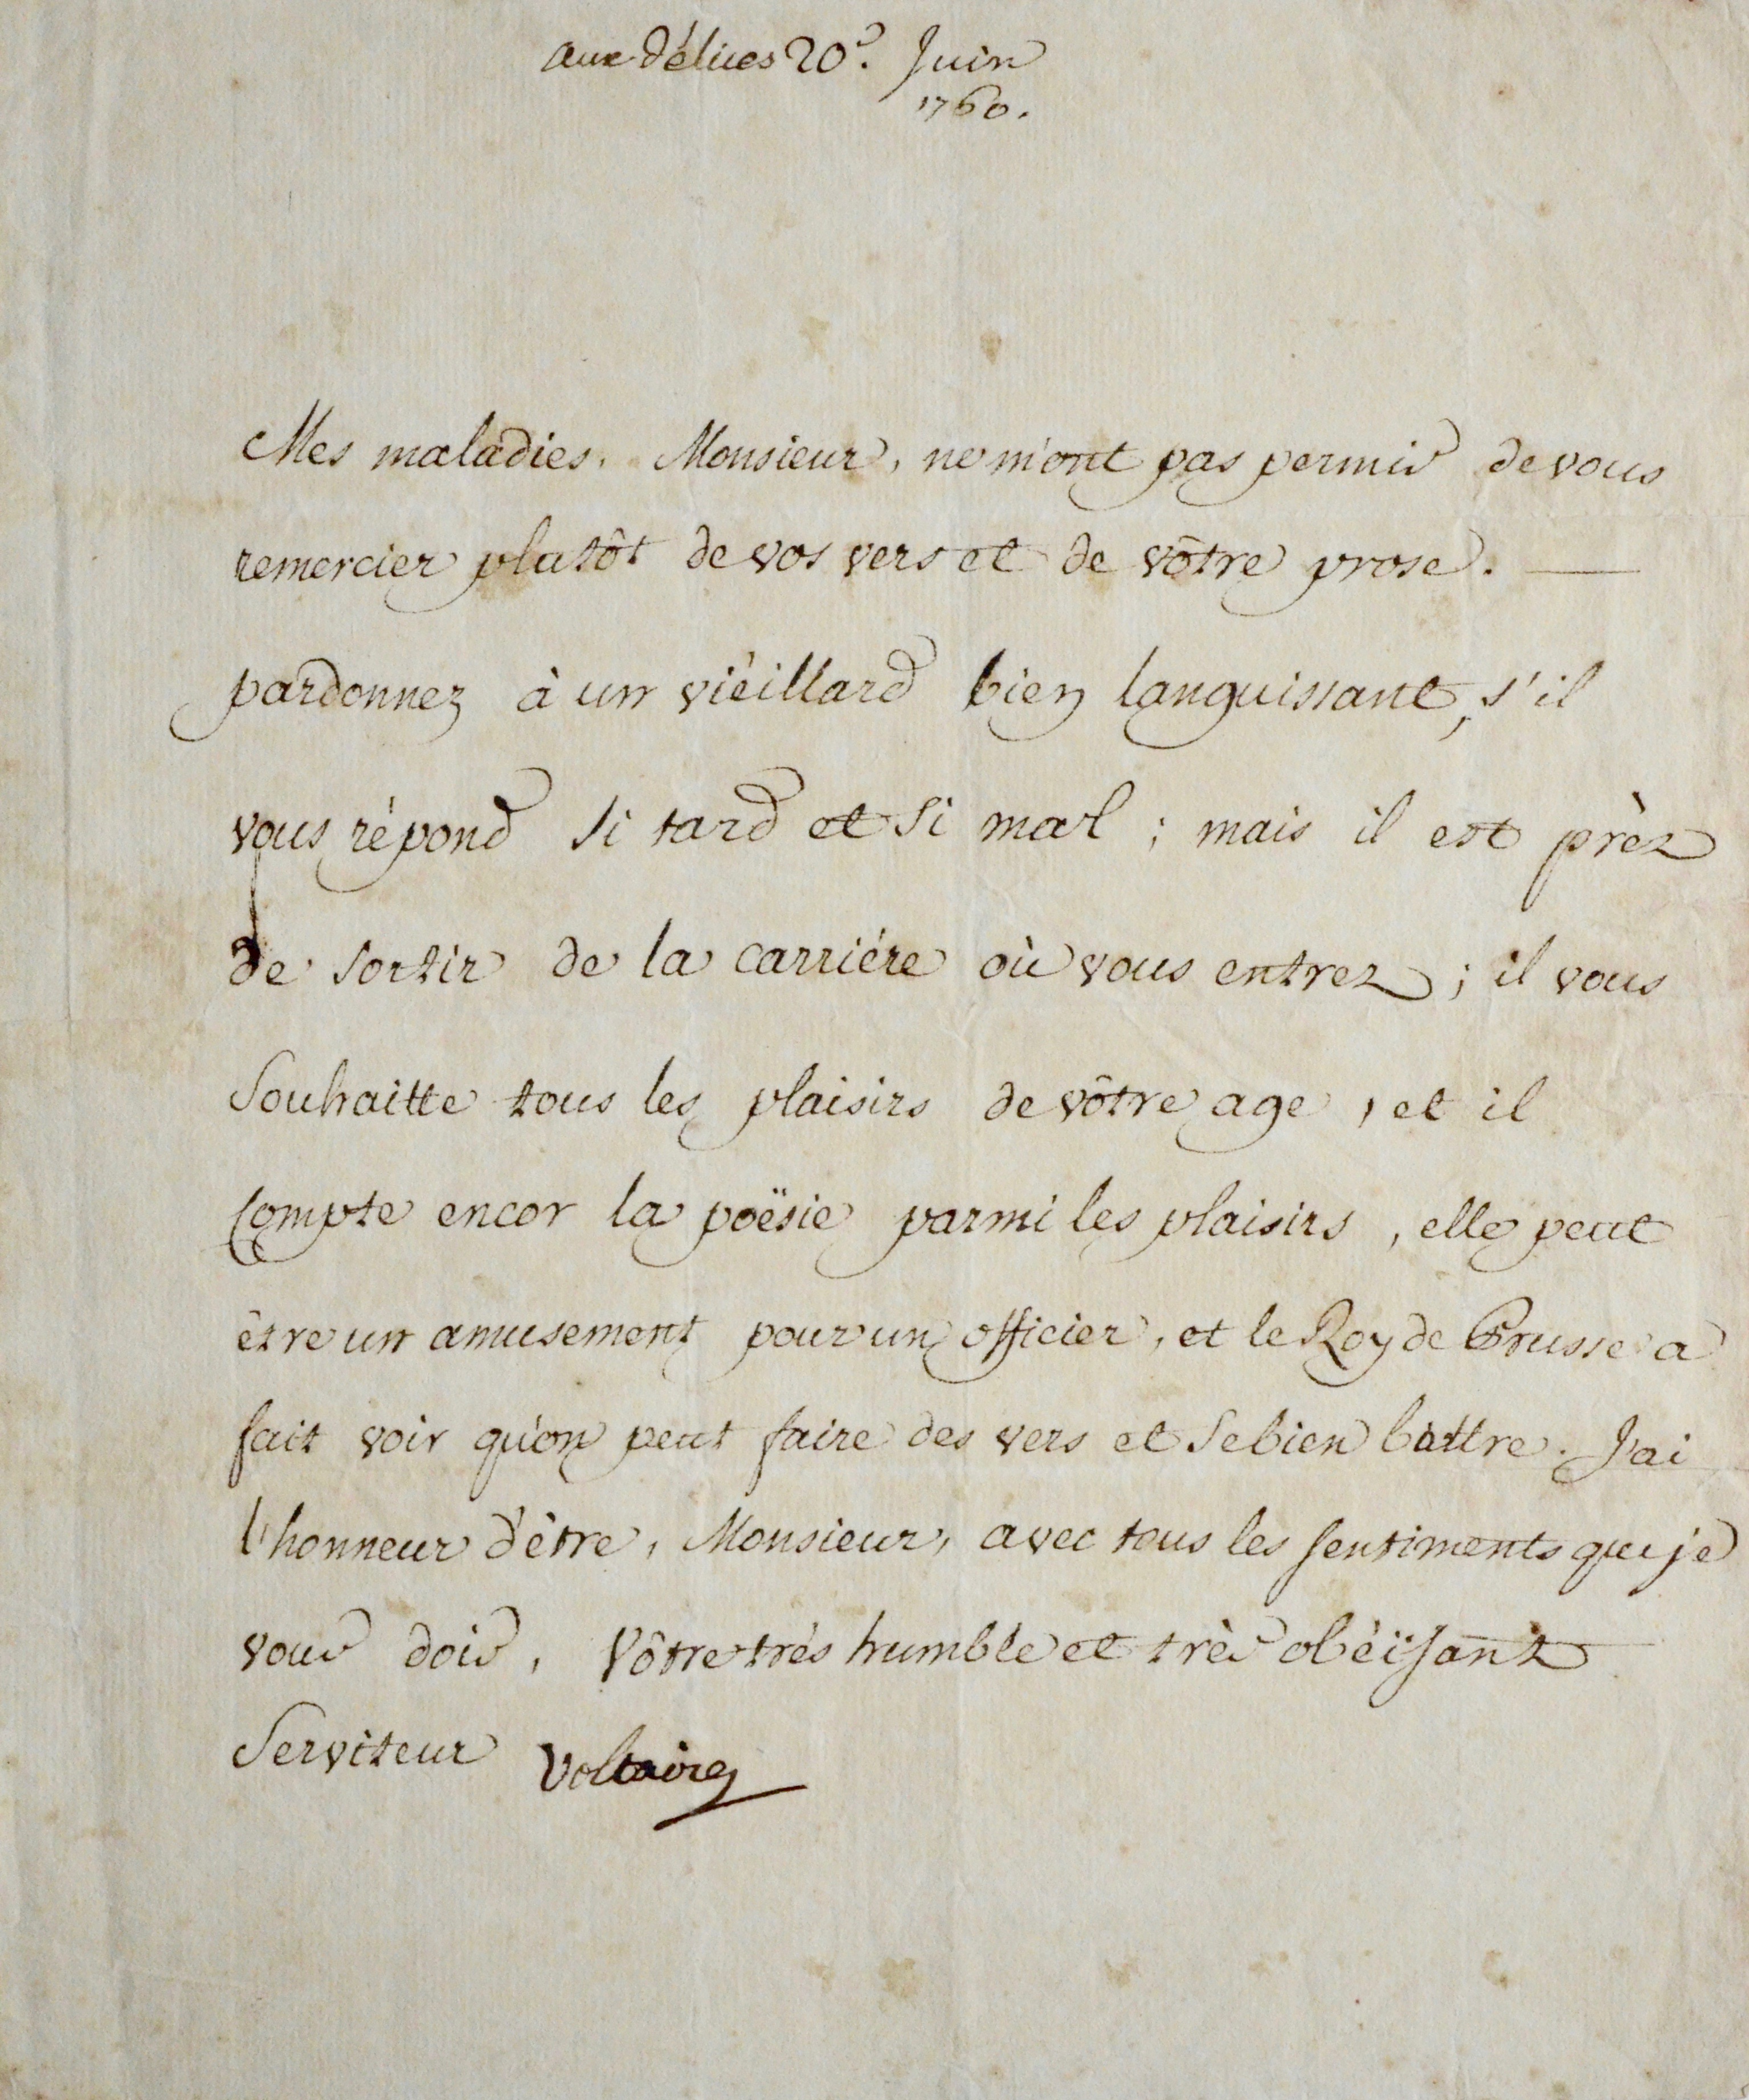 aux Délices 20e. Juin
1760.
Mes maladies, Monsieur, ne m'ont pas permis de vous
remercier plutôt de vos vers et de vôtre prose.
pardonnez à un viéillard bien languissant, s'il
vous répond si tard et si mal ; mais il est prèz
de sortir de la carriére où vous entrez ; il vous
souhaitte tous les plaisirs de vôtre age, et il
compte encor la poësie parmi les plaisirs, elle peut
être un amusement pour un officier, et le Roy de Prusse a
fait voir qu'on peut faire des vers et se bien battre. J'ai
l'honneur d'être, Monsieur, avec tous les sentiments que je
vous dois, Vôtre trés humble et très obéïssant
Serviteur Voltaire